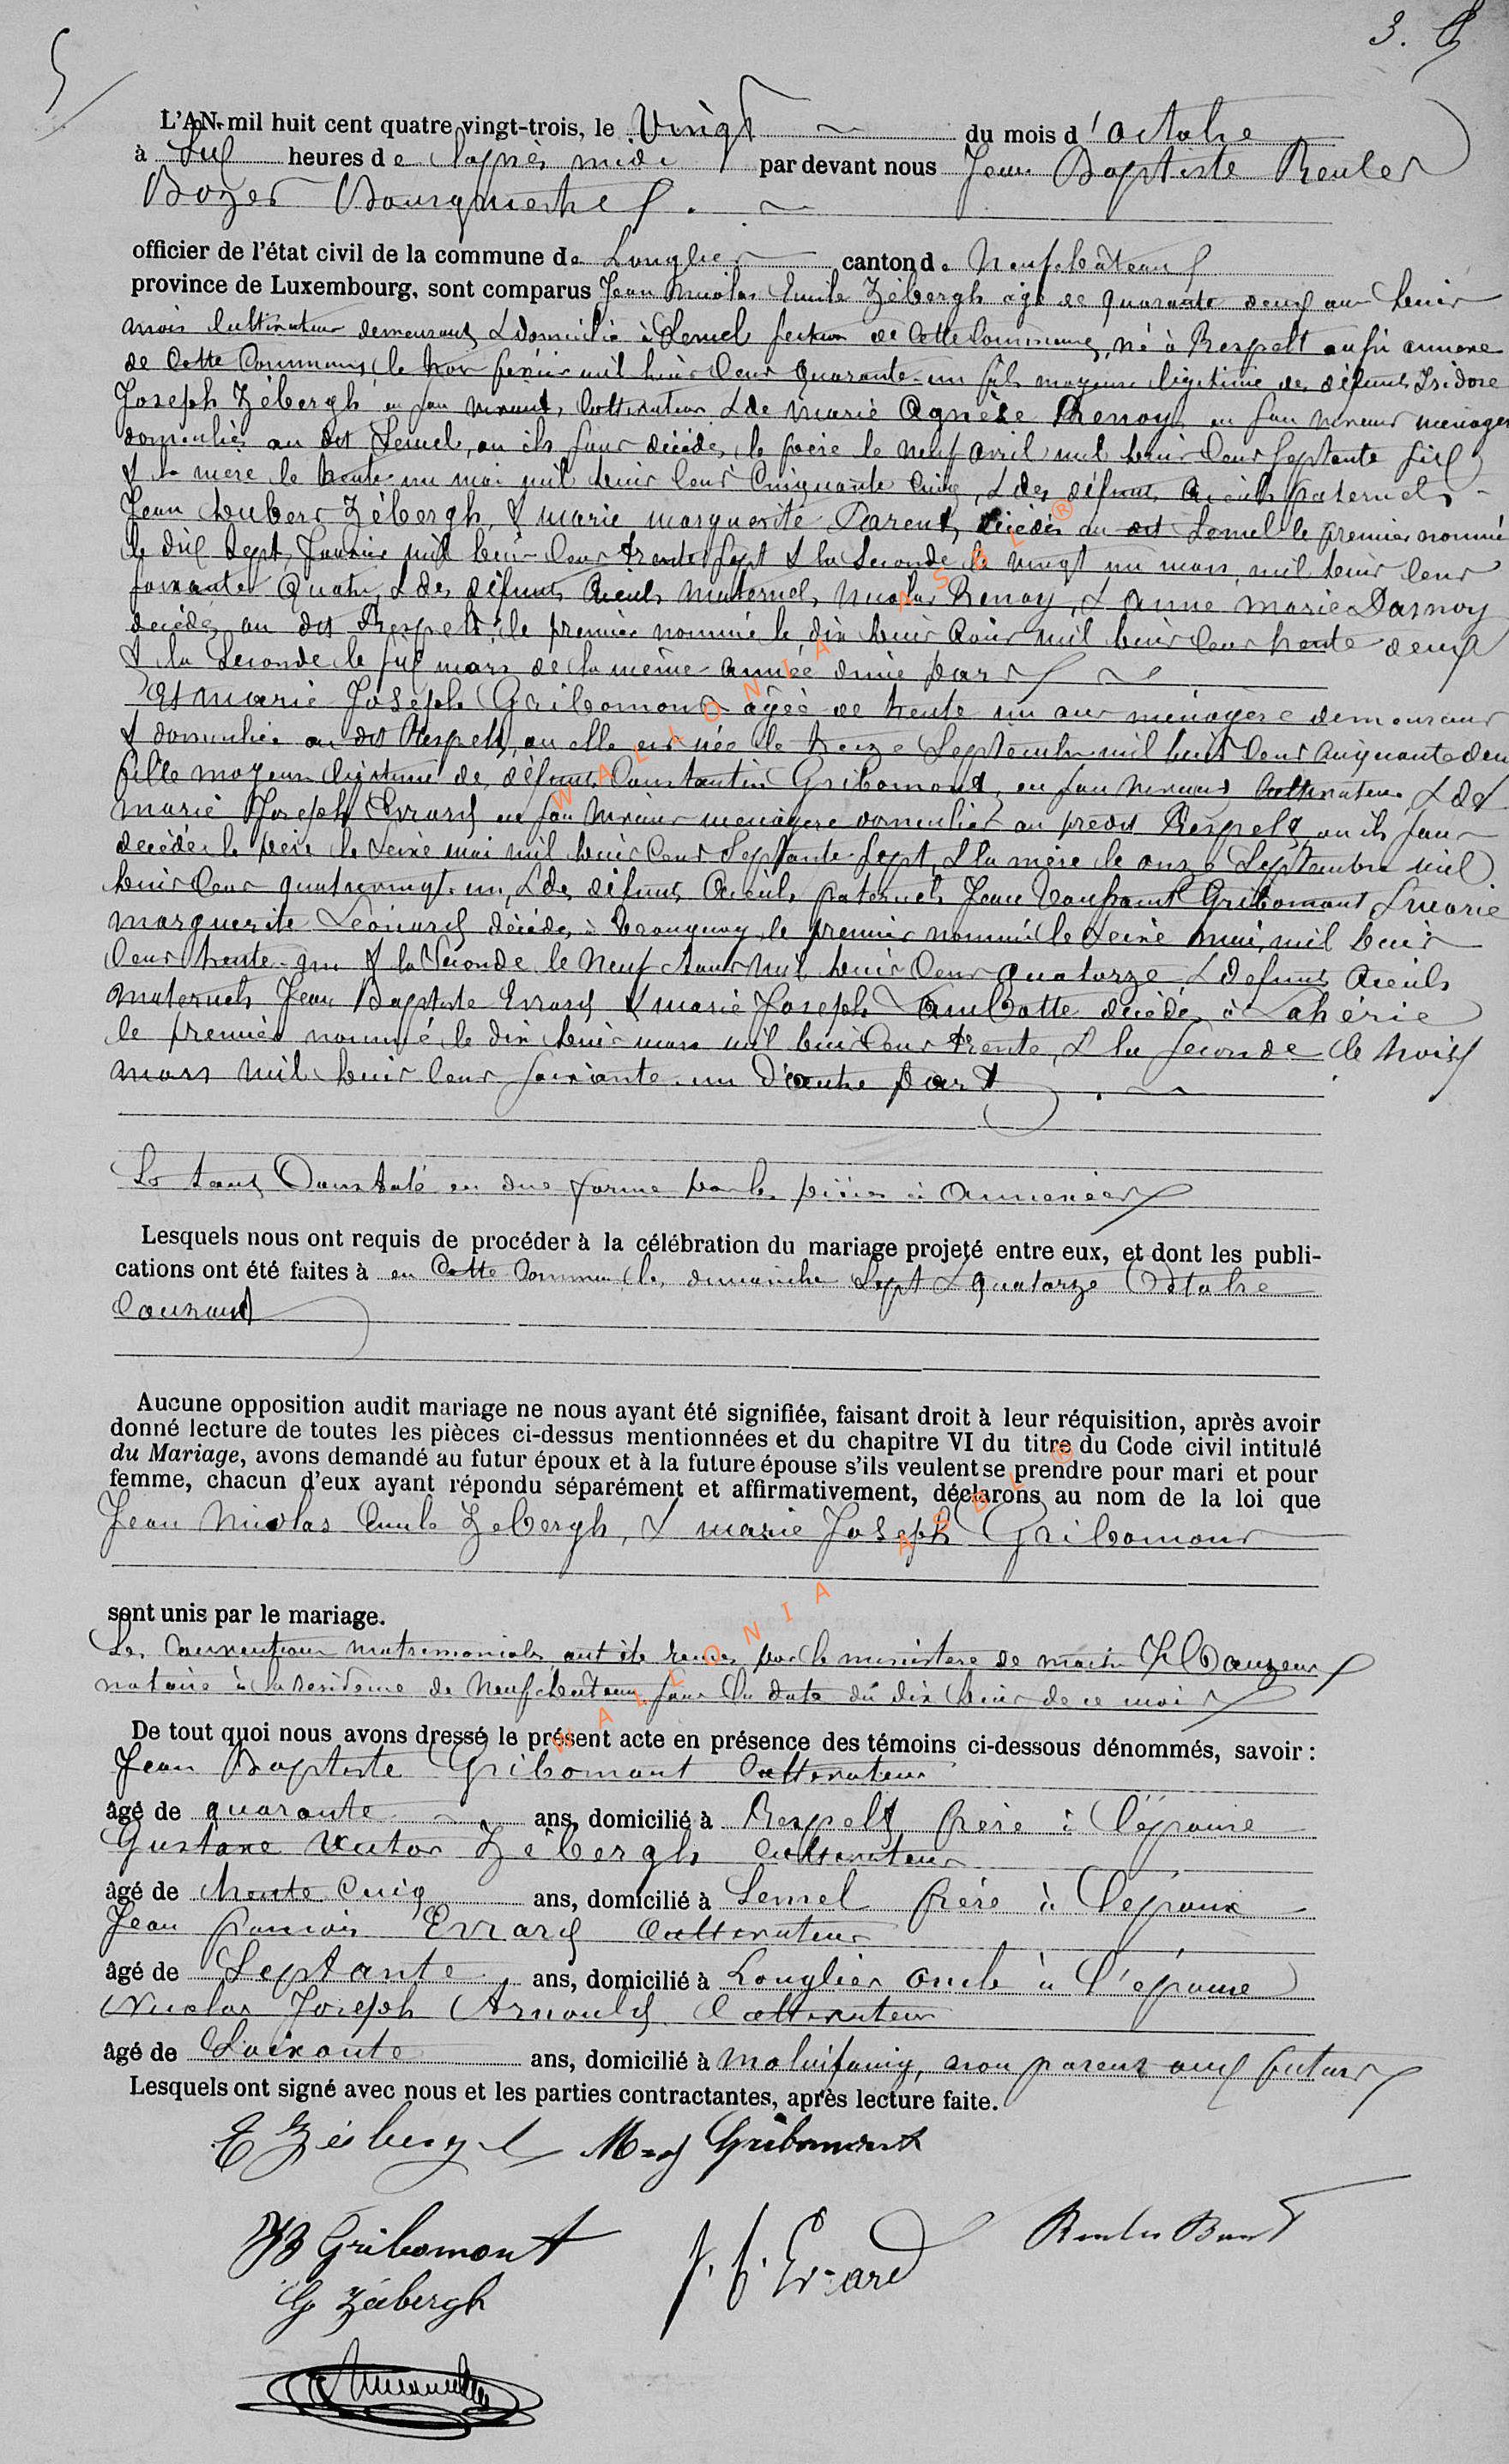 5
3.
L'AN mil huit cent quatre vingt-trois, le Vingt du mois d'octobre
à Six heures de l'après midi par devant nous Jean Baptiste Reuler
Bourgmestre
officier de l'état civil de la commune de Longlier canton de Neufchâteau
province de Luxembourg, sont comparus Jean Nicolas Emile Zèbergh âgé de quarante deux ans huit
mois Cultivateur demeurant & domicilié à Lemel section de cette Commune, né à Respelt aussi annexe
de cette Commune, le trois février mil huit cent quarante-un fils majeur légitime des défunts Isidore
Joseph Zèbergh en son vivant, Cultivateur & de Marie Agnèse Renoy en son vivant ménagère
domiciliés au dit Lemel, où ils sont décédés, le père le neuf avril mil huit cent septante six
& la mère le trente-un mai mil huit cent cinquante cinq, & des défunts aieuls paternels
Jean hubert Zèbergh, & marie marguerite Parent, décédés au dit Lemel le premier nommé
le dix sept Janvier mil huit cent trente sept & la seconde le vingt un mars mil huit cent
soixante quatre, & des défunts aieuls maternels Nicolas Renoy, & anne marie Darnoy
décédés au dit Respelt, le premier nommé le dix huit août mil huit cent trente deux
& la seconde le six mars de la même année d'une part
Et marie Joseph Gribomont âgée de trente un ans ménagère demeurant
& domiciliée au dit Respelt, où elle est née le treize Septembre mil huit cent cinquante deux
fille majeure légitime des défunts Constantin Gribomont, en son vivant Cultivateur & de
marie Joseph Evrard en son vivant ménagère domiciliés au predit Respelt où ils sont
décédés le père le seize mai mil huit cent septante-sept, & la mère le onze Septembre mil
huit cent quatrevingt-un, & des défunts aieuls paternels Jean Gribomont & marie
marguerite Léonard décédés à le premier nommé le seize mai mil huit
cent trente-un & la seconde le neuf mil huit cent quatorze, & défunts aieuls
maternels Jean Baptiste Evrard & marie Joseph Lambotte décédés à Lahérie
le premier nommé le dix huit mars mil huit cent trente, & la seconde le trois
mars mil huit cent soixante-un D'autre part
Le tout Constaté en due forme par les pièces ci annexées
Lesquels nous ont requis de procéder à la célébration du mariage projeté entre eux, et dont les publi-
cations ont été faites à en Cette Commune les dimanches Sept & quatorze Octobre
Courant
Aucune opposition audit mariage ne nous ayant été signifiée, faisant droit à leur réquisition, après avoir
donné lecture de toutes les pièces ci-dessus mentionnées et du chapitre VI du titre du Code civil intitulé
du Mariage, avons demandé au futur époux et à la future épouse s'ils veulent se prendre pour mari et pour
femme, chacun d'eux ayant répondu séparément et affirmativement, déclarons au nom de la loi que
Jean Nicolas Emile Zebergh, & marie Joseph Gribomont
sont unis par le mariage.
Les Conventions matrimoniales ont été reçues par le ministère de maître
notaire à la résidence de Neufchâteau sous la date du dix huit de ce mois
De tout quoi nous avons dressé le présent acte en présence des témoins ci-dessous dénommés, savoir :
Jean Baptiste Gribomont Cultivateur
âgé de quarante ans, domicilié à Respelt frère à l'épouse
Gustave Victor Zèbergh Cultivateur
âgé de trente cinq ans, domicilié à Lemel frère à l'époux
Jean françois Evrard Cultivateur
âgé de Septante ans, domicilié à Longlier oncle à l'épouse
Nicolas Joseph Arnould Cultivateur
âgé de Soixante ans, domicilié à molinfaing, non parent aux futurs
Lesquels ont signé avec nous et les parties contractantes, après lecture faite.
E Zèbergh M J Gribomont
JB Gribomont J. f. Evrard
G Zèbergh
WALLONIA ASBL ®
WALLONIA ASBL ®